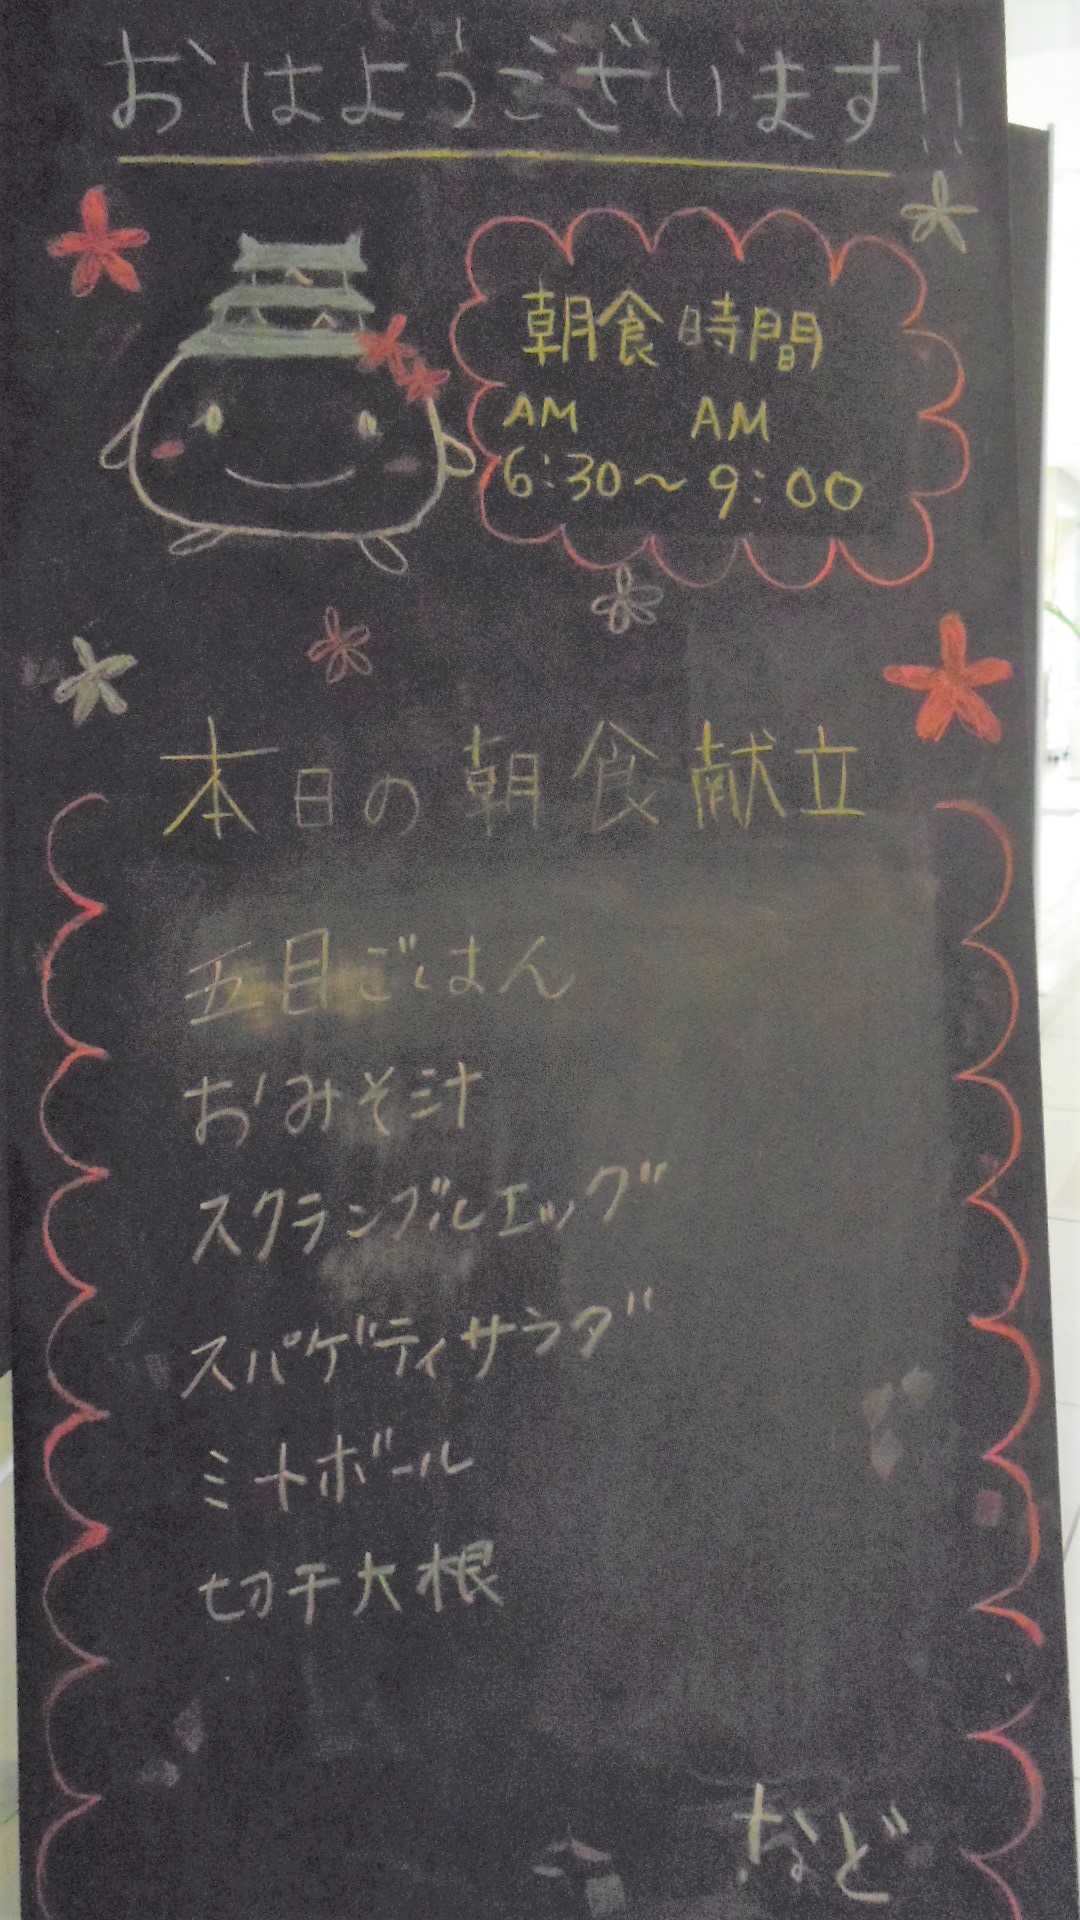 おはようございます!!
朝食時間
AM AM
6:30～9:00
本日の朝食献立
五目ごはん
おみそ汁
スクランブルエッグ
スパゲティサラダ
ミートボール
切干大根
など